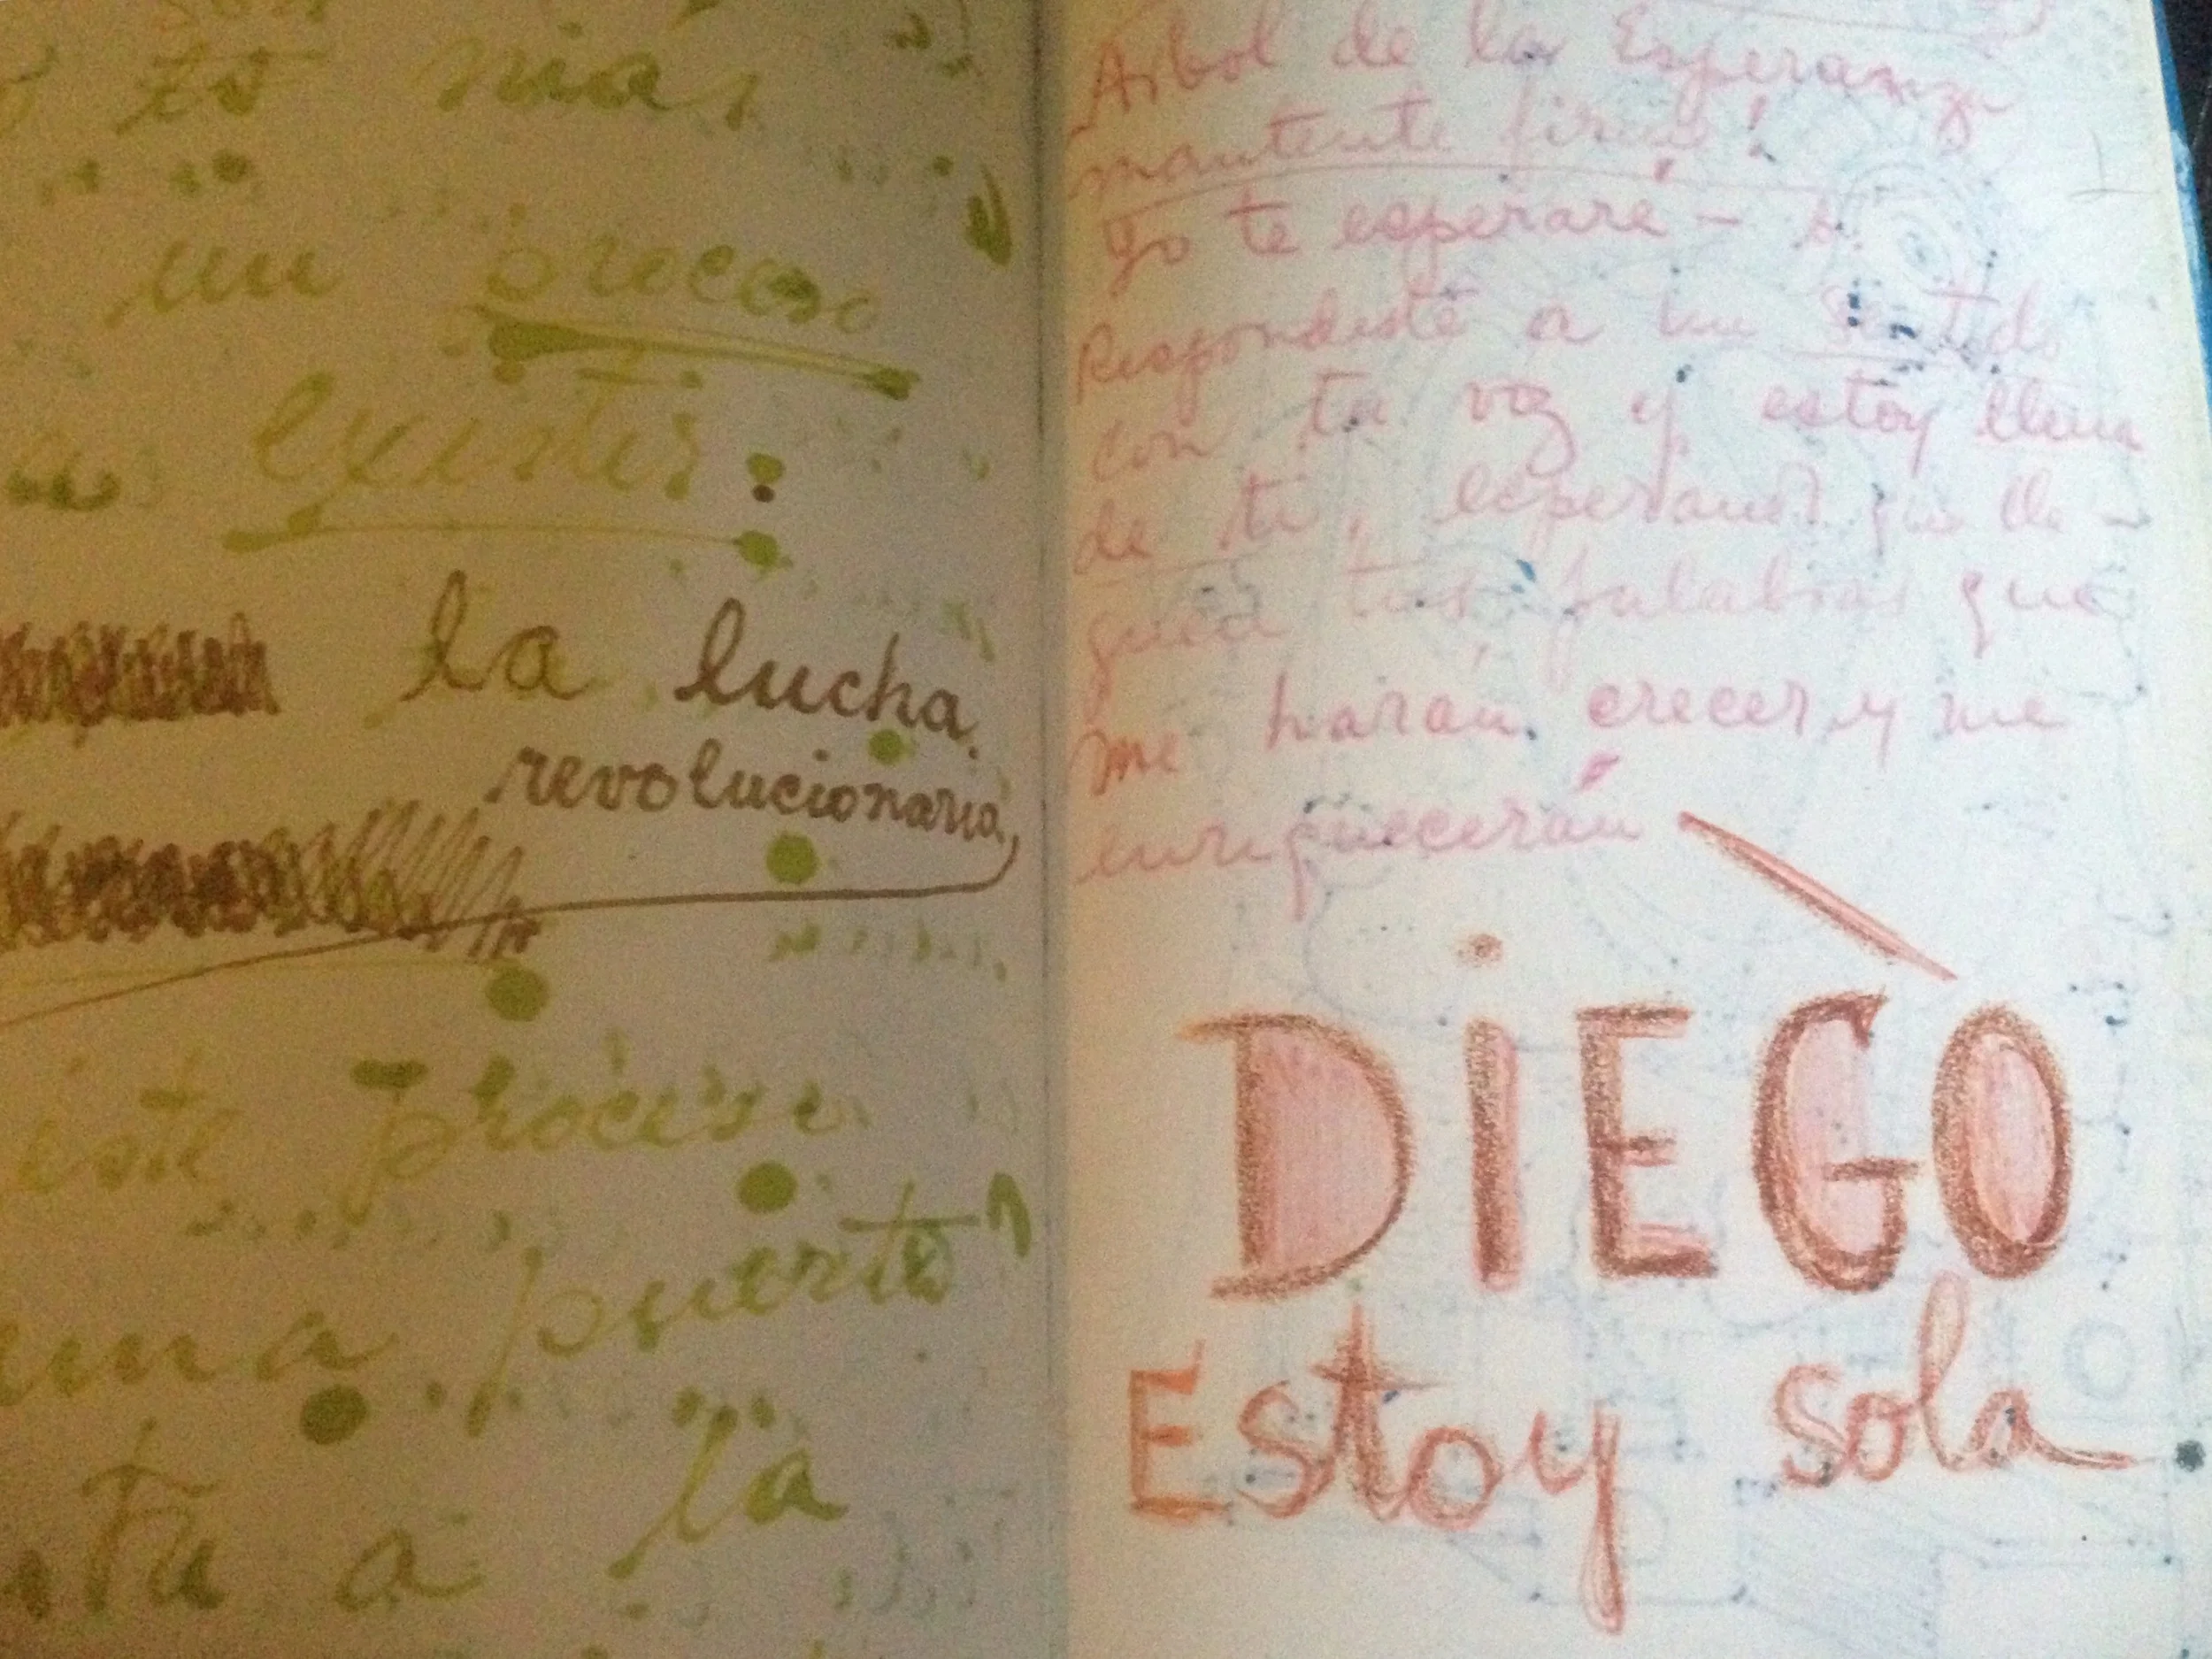 yo no más
un proceso
existir.
la lucha
revolucionaria
este proceso
una puerta
la
Arbol de la Esperanza
mantente firme!
Yo te esperaré - b.
Respondiste a un sentido
con tu voz y estoy llena
de ti, esperando que lle-
guen tus palabras que
me harán crecer y me
enriquecerán
DiEGO
Estoy sola